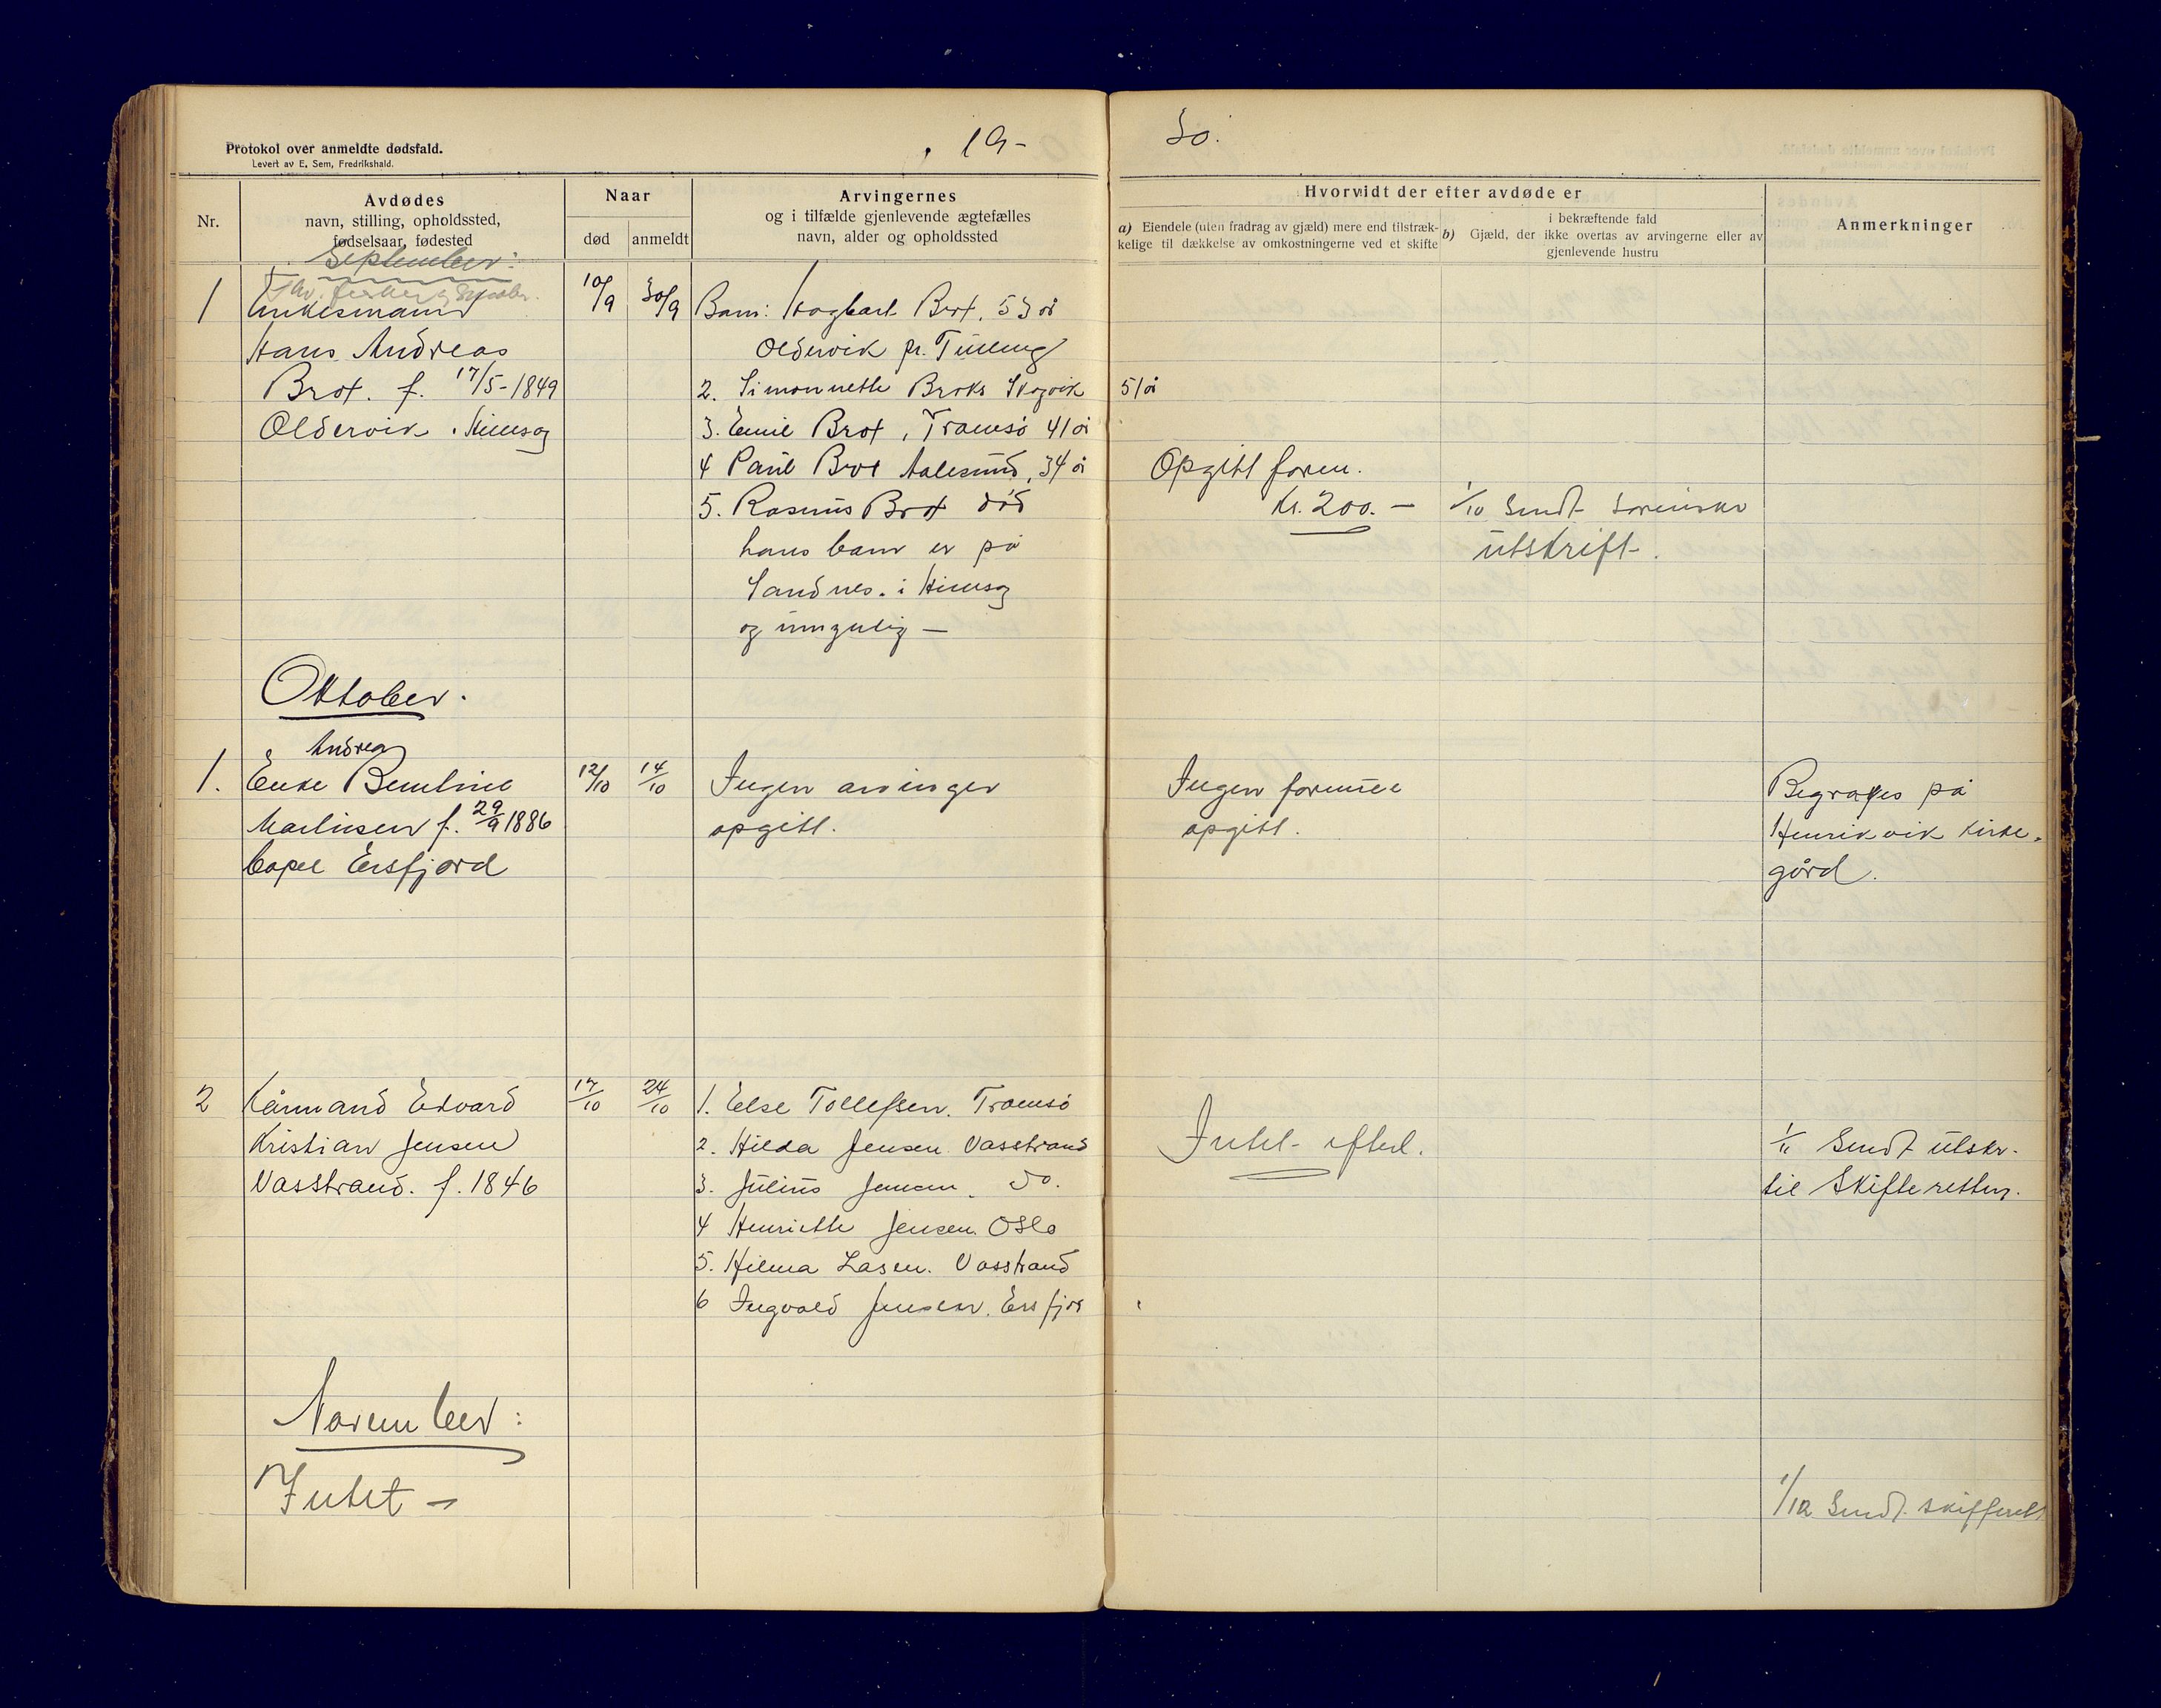 Protokol over anmeldte dødsfald.
Levert av E. Sem, Fredrikshald.
19-
30.
Nr.
Avdødes
navn, stilling, opholdssted,
fødselsaar, fødested
Naar
død
anmeldt
Arvingernes
og i tilfælde gjenlevende ægtefælles
navn, alder og opholdssted
Hvorvidt der efter avdøde er
a) Eiendele (uten fradrag av gjæld) mere end tilstræk-
kelige til dækkelse av omkostningerne ved et skifte
b) Gjæld, der
i bekræftende fald
ikke overtas av arvingerne eller av
gjenlevende hustru
Anmerkninger
September:
1 Enkesmand 10/9 30/9 Barn: Hagbart Brox, 53 år
Hans Andreas Oldervik pr.
Brox. f. 17/5-1849 2. Simonnette Broks Skogvik 51 år
Oldervik. 3. Emil Brox, Tromsø 41 år
4 Paul Brox Aalesund, 34 år Opgitt form.
5. Rasmus Brox død Kr. 200.- 1/10 Sendt Sorenskr
hans barn er på utskrift.
Sandnes. i
og umyndig -
Oktober.
Andrea
1. Enke 12/10 14/10 Ingen arvinger Ingen formue Begraves på
f. 29/9 1886 opgitt. opgitt. Henrikvik kirke-
bopel Ersfjord gård.
2 Kårmand Edvard 17/10 24/10 1. Else Tollefsen. Tromsø
Kristian Jensen 2. Hilda Jensen Vasstrand Intet efterl. 1/11 Sendt utskr.
Vasstrand. f. 1846 3. Julius Jensen. do. til Skifteretten.
4 Henriette Jensen. Oslo
5. Hilma Lasen. Vasstrand
6 Ingvald Jensen. Ersfjor
November:
Intet - 1/12 Sendt skifteret